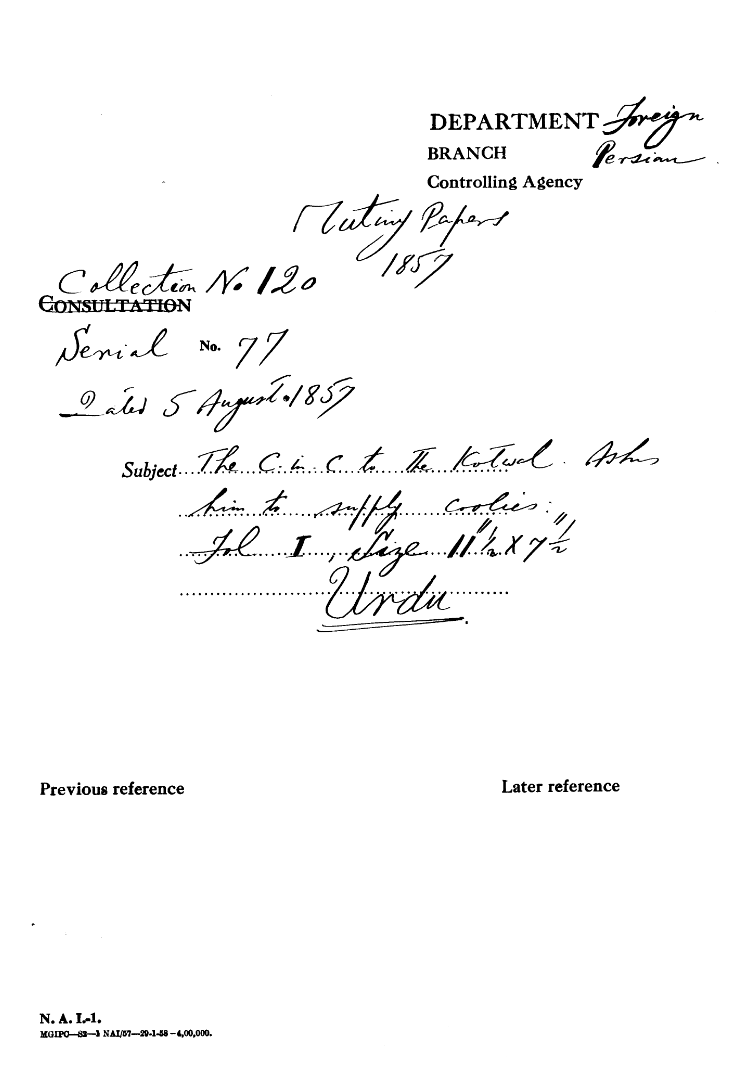 DEPARTMENT Foreign
BRANCH Persian
Controlling Agency
Mutiny Papers
1857
Collection No 120
CONSULTATION
Serial No. 77
Dated 5 August 1857
Subject The C. in. C. to the Kotwal. Asks
him to supply coolies.
Fol I, Size 11"½ X 7"½
Urdu
Previous reference
Later reference
N. A. I.-1.
MGIPC—S2—1 NAI/57—29-1-58—4,00,000.